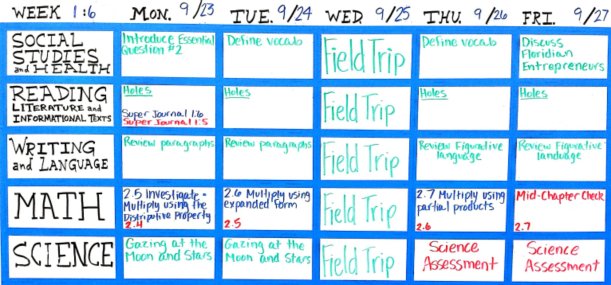 WEEK 1:6 MON. 9/23 TUE. 9/24 WED. 9/25 THU. 9/26 FRI. 9/27
SOCIAL
STUDIES
and HEALTH
Introduce Essential
Question #2
Define vocab
Field Trip
Define vocab
Discuss
Floridian
Entrepreneurs
READING
LITERATURE and
INFORMATIONAL TEXTS
Holes
Super Journal 1:6
Super Journal 1:5
Holes
Field Trip
Holes
Holes
WRITING
and LANGUAGE
Review paragraphs
Review paragraphs
Field Trip
Review Figurative
language
Review Figurative
language
MATH
2.5 Investigate -
Multiply using the
Distributive Property
2.4
2.6 Multiply using
expanded form
2.5
Field Trip
2.7 Multiply using
partial products
2.6
Mid-Chapter Check
2.7
SCIENCE
Gazing at the
Moon and Stars
Gazing at the
Moon and Stars
Field Trip
Science
Assessment
Science
Assessment